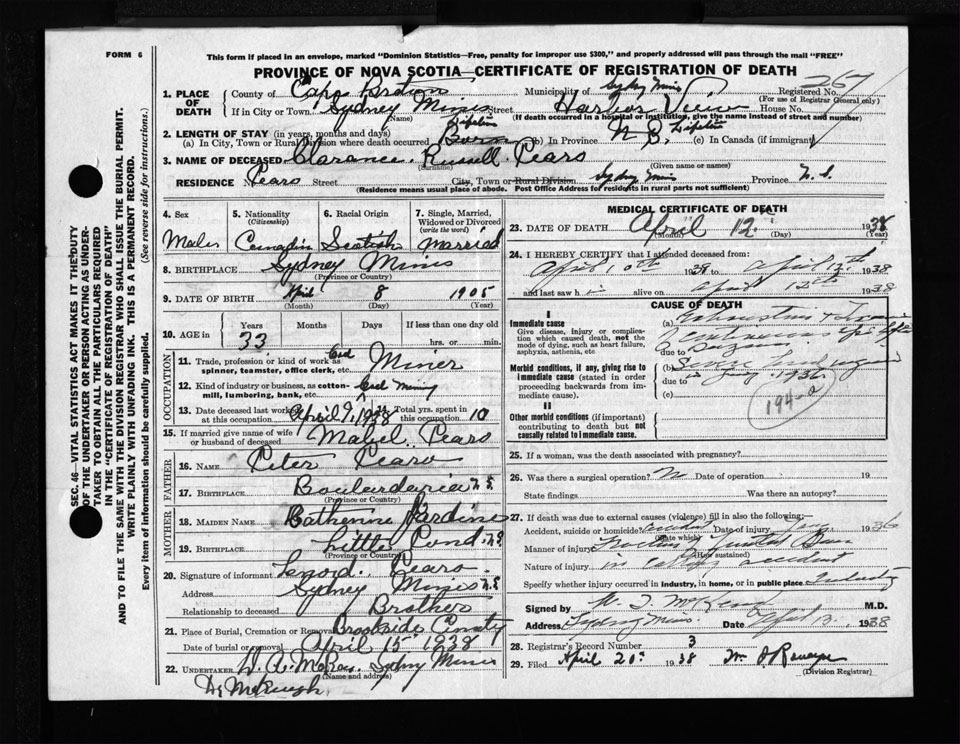 FORM 6
This form if placed in an envelope, marked "Dominion Statistics—Free, penalty for improper use $300," and properly addressed will pass through the mail "FREE"
PROVINCE OF NOVA SCOTIA—CERTIFICATE OF REGISTRATION OF DEATH
1. PLACE OF DEATH
County of Cape Breton Municipality of Sydney Mines Registered No. 267
(For use of Registrar General only)
If in City or Town Sydney Mines Street Harbor View House No.
(Name) (If death occurred in a hospital or institution, give the name instead of street and number)
2. LENGTH OF STAY (in years, months and days)
(a) In City, Town or Rural Division where death occurred Lifetime (b) In Province N S Lifetime (c) In Canada (if immigrant)
3. NAME OF DECEASED Clarance Russell Pears
(Surname) (Given name or names)
RESIDENCE N Pears Street City, Town or Rural Division Sydney Mines Province N. S.
(Residence means usual place of abode. Post Office Address for residents in rural parts not sufficient)
4. Sex
Male
5. Nationality
(Citizenship)
Canadin
6. Racial Origin
Scotish
7. Single, Married, Widowed or Divorced
(write the word)
Married
8. BIRTHPLACE Sydney Mines
(Province or Country)
9. DATE OF BIRTH April 8 1905
(Month) (Day) (Year)
10. AGE in
Years Months Days If less than one day
33 hrs. or min.
OCCUPATION
11. Trade, profession or kind of work as spinner, teamster, office clerk, etc. Coal Miner
12. Kind of industry or business, as cotton-mill, lumbering, bank, etc. Coal Mining
13. Date deceased last worked at this occupation April 9, 1938 Total yrs. spent in this occupation 10
15. If married give name of wife or husband of deceased Mabel Pears
FATHER
16. NAME Peter Pears
17. BIRTHPLACE Boulardarie N S
(Province or Country)
MOTHER
18. MAIDEN NAME Catherine Jardine
19. BIRTHPLACE Little Pond N S
(Province or Country)
20. Signature of informant Pears
Address Sydney Mines N S
Relationship to deceased Brother
21. Place of Burial, Cremation or Removal Brookside
Date of burial or removal April 15 1938
22. UNDERTAKER Sydney Mines
(Name and address)
MEDICAL CERTIFICATE OF DEATH
23. DATE OF DEATH April 12 1938
(Month) (Day) (Year)
24. I HEREBY CERTIFY that I attended deceased from:
April 10th 1938 to April 12th 1938
and last saw h i alive on April 12th 1938
CAUSE OF DEATH
I
Immediate cause
Give disease, injury or complication which caused death, not the mode of dying, such as heart failure, asphyxia, asthenia, etc
(a)
due to
Morbid conditions, if any, giving rise to immediate cause (stated in order proceeding backwards from immediate cause)
(b)
due to in 1936
(c)
194-a
II
Other morbid conditions (if important) contributing to death but not causally related to immediate cause.
25. If a woman, was the death associated with pregnancy?
26. Was there a surgical operation? N Date of operation 19
State findings Was there an autopsy?
27. If death was due to external causes (violence) fill in also the following:—
Accident, suicide or homicide? accident Date of injury Jan 1936
(State which)
Manner of injury
(How sustained)
Nature of injury in accident
Specify whether injury occurred in industry, in home, or in public place. Industry
Signed by M.D.
Address Sydney Mines Date April 13 1938
28. Registrar's Record Number 3
29. Filed April 20th 1938
(Division Registrar)
SEC. 46—VITAL STATISTICS ACT MAKES IT THE DUTY OF THE UNDERTAKER OR PERSON ACTING AS UNDERTAKER TO OBTAIN ALL THE PARTICULARS REQUIRED IN THE "CERTIFICATE OF DEATH"
AND TO FILE THE SAME WITH THE DIVISION REGISTRAR WHO SHALL ISSUE THE BURIAL PERMIT.
WRITE PLAINLY WITH UNFADING INK. THIS IS A PERMANENT RECORD.
Every item of information should be carefully supplied. (See reverse side for instructions.)